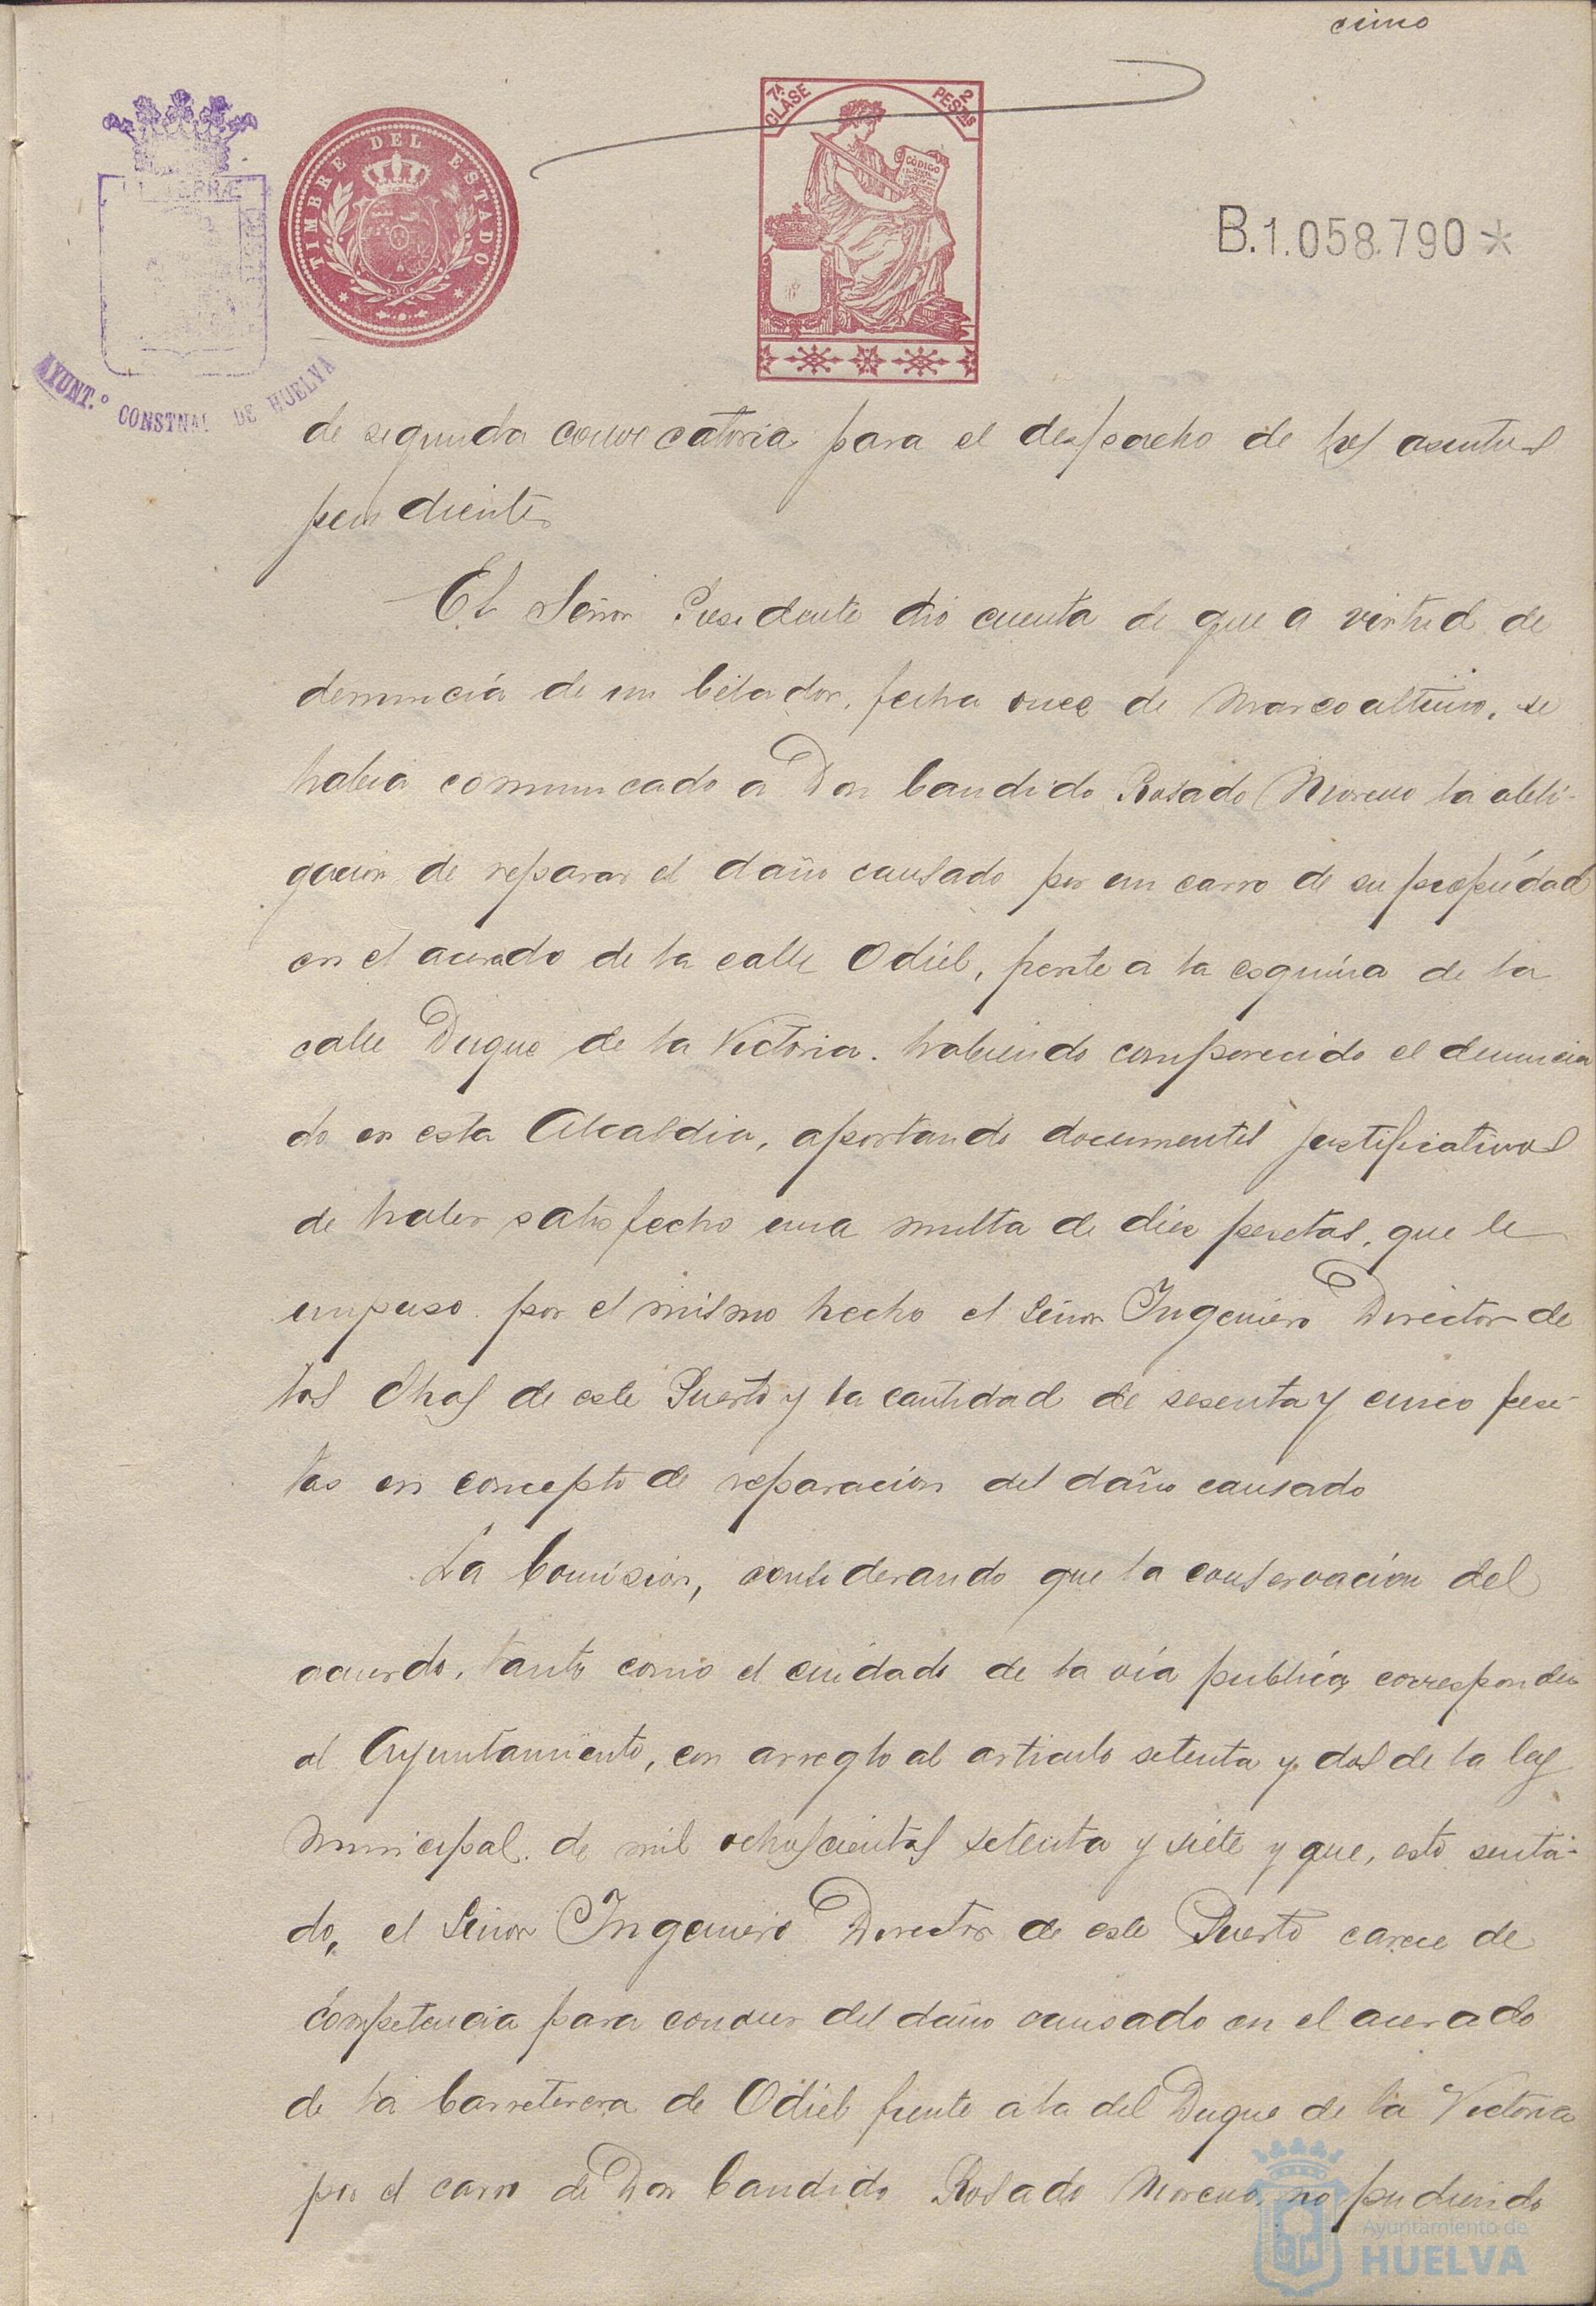 cinco
7ª CLASE
2 PESTAS
CÓDIGO
TIMBRE DEL ESTADO
B.1.058.790*
AYUNT.º CONSTNAL DE HUELVA
de segunda convocatoria para el despacho de los asuntos
pendientes
El Señor Presidente dió cuenta de que a virtud de
denuncia de un Celador, fecha once de Marzo ultimo, se
habia comunicado a Don Candido Rosado Moreno la obli-
gacion de reparar el daño causado por un carro de su propiedad
en el acerado de la calle Odiel, frente a la esquina de la
calle Duque de la Victoria. habiendo comparecido el denuncia
do en esta Alcaldia, aportando documentos justificativos
de haber satisfecho una multa de diez pesetas, que le
impuso por el mismo hecho el Señor Ingeniero Director de
las Obras de este Puerto y la cantidad de sesenta y cinco pese-
tas en concepto de reparacion del daño causado
La Comision, considerando que la conservacion del
acerado, tanto como el cuidado de la via publica corresponden
al Ayuntamiento, con arreglo al articulo setenta y dos de la ley
Municipal de mil ochoscientos setenta y siete y que, esto senta-
do, el Señor Ingeniero Director de este Puerto carece de
competencia para conocer del daño causado en el acerado
de la Carreterera de Odiel frente a la del Duque de la Victoria
por el carro de Don Candido Rosado Moreno, no pudiendo
Ayuntamiento de
HUELVA